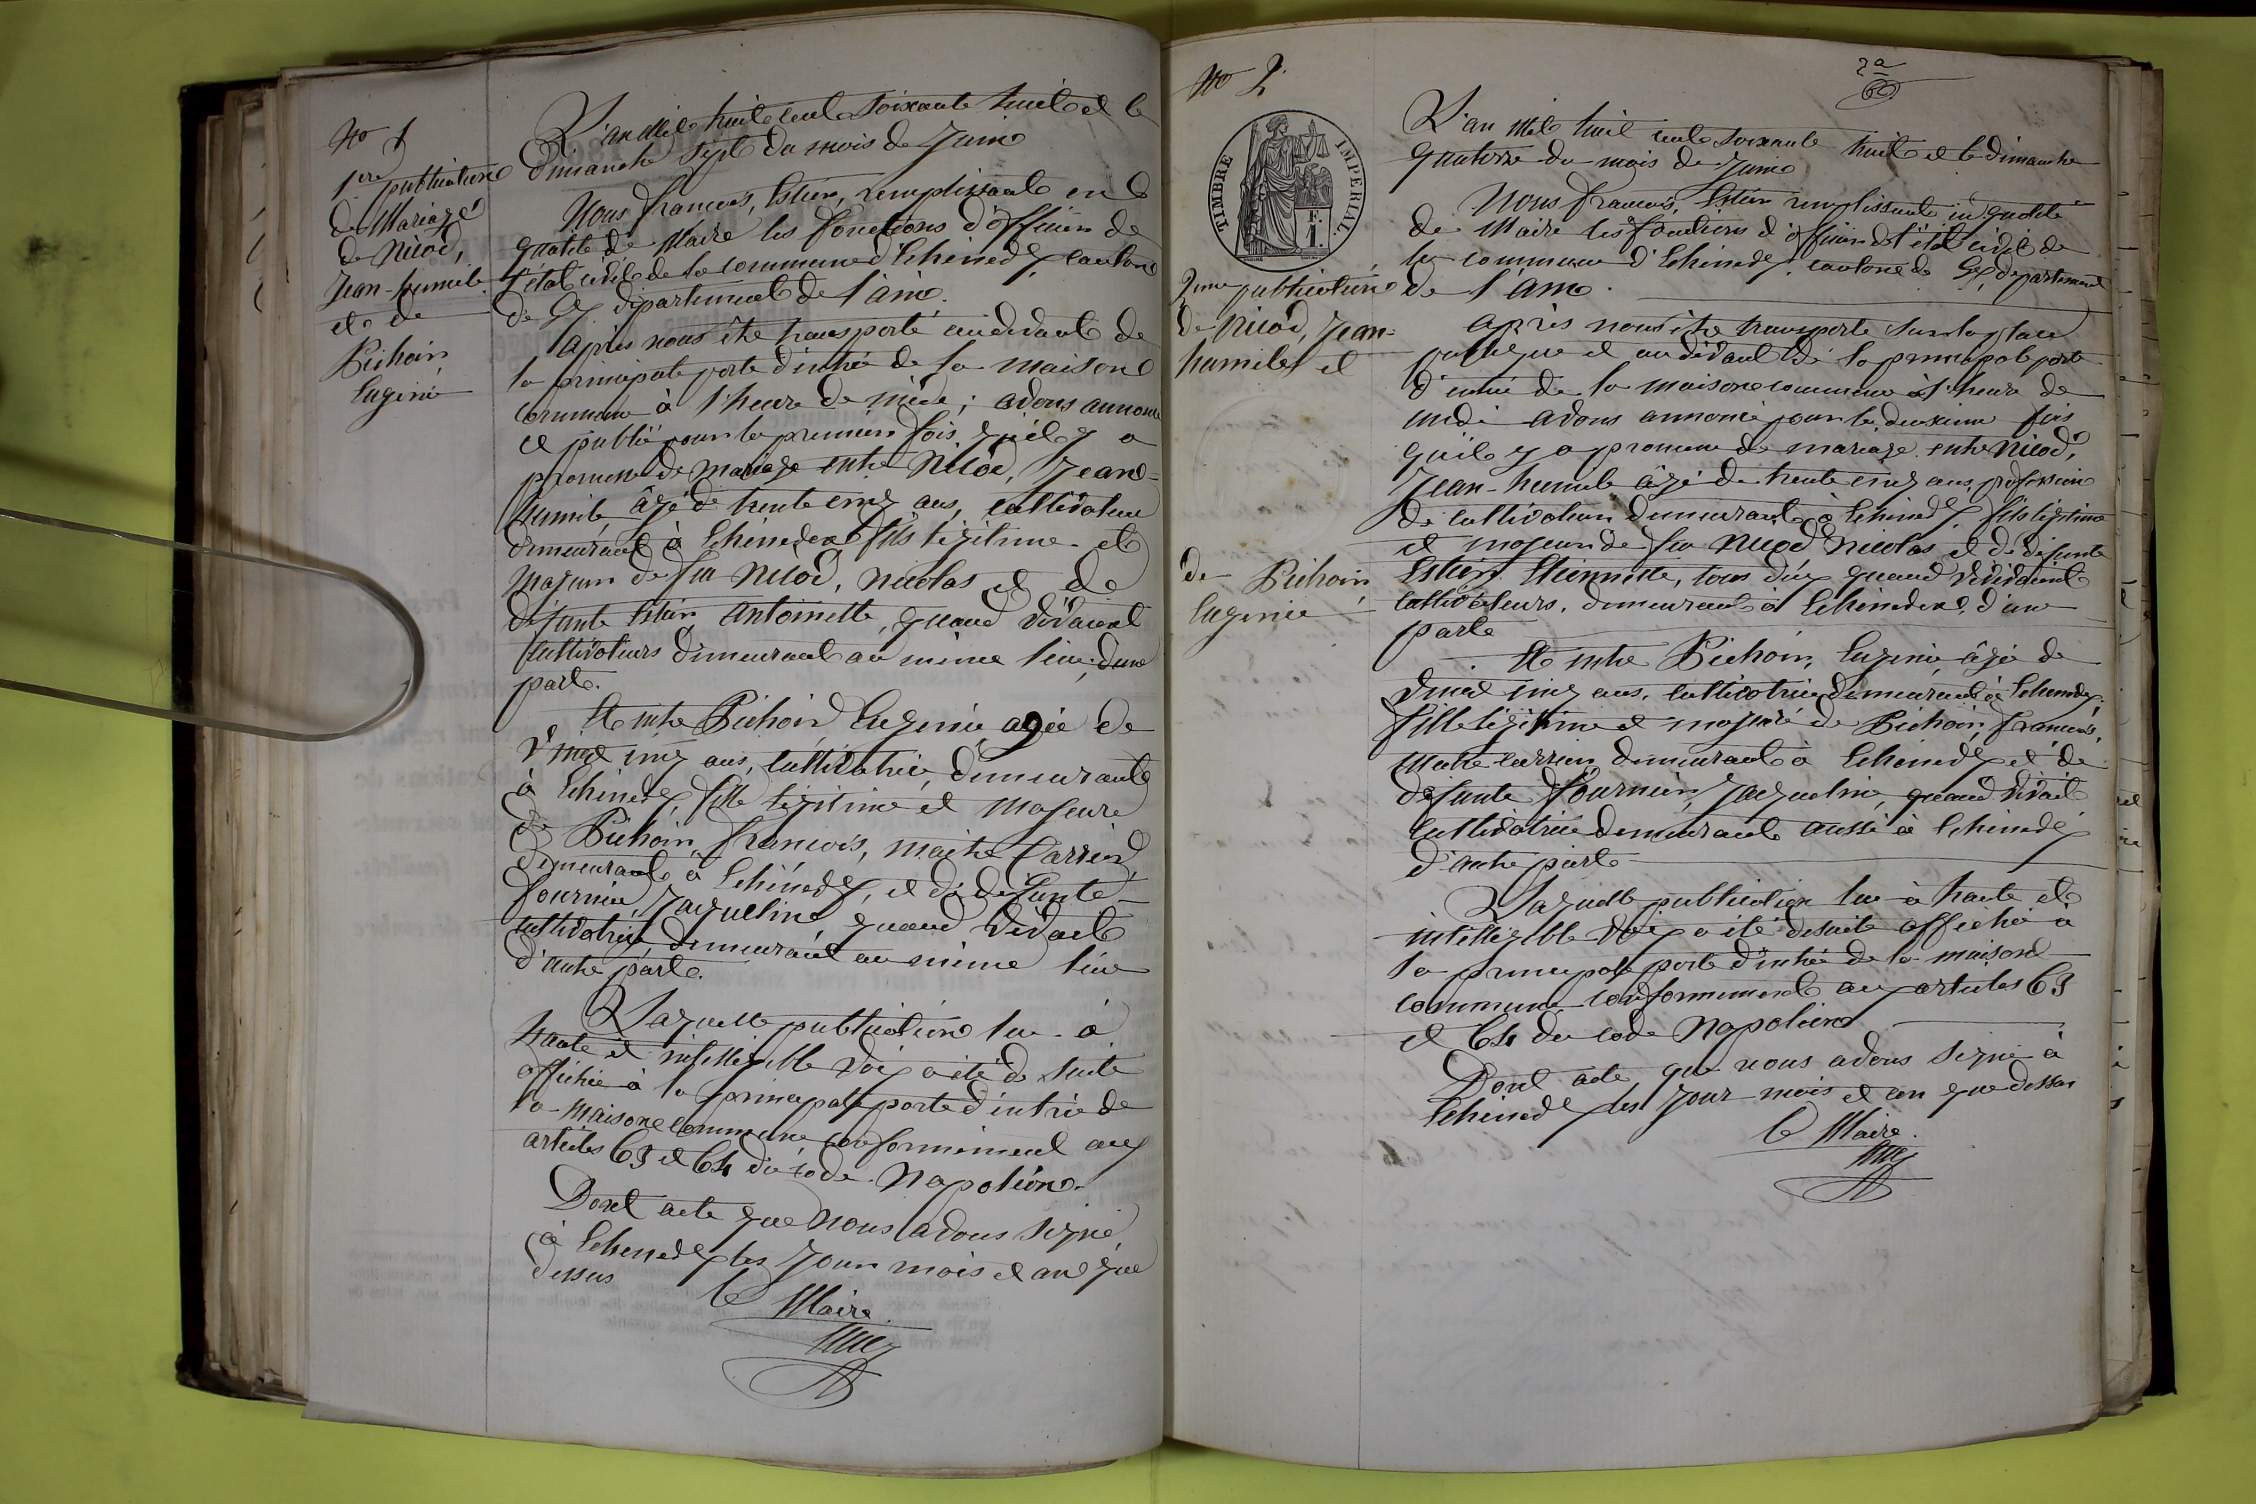 No 1
1ère publication
de Mariage
de Nicod,
Jean-humile
et de
Pichoin,
Eugénie
L'an mil huit cent soixante huit et le
Dimanche sept du mois de Juin
Nous François, Estier, remplissant en
qualité de Maire les fonctions d'officier de
l'état civil de la commune d'Echenevex, canton
de Gex département de l'ain.
Après nous être transporté au devant de
la principale porte d'entrée de la maison
commune à l'heure de midi; avons annoncé
et publié pour la première fois qu'il y a
promesse de mariage entre Nicod, Jean-
humile, âgé de trente cinq ans, cultivateur
demeurant à Echenevex fils légitime et
majeur de feu Nicod, Nicolas et de
défunte Estier, Antoinette, quand vivaient
cultivateurs demeurant au même lieu, d'une
part.
Et entre Pichoin Eugénie agée de
vingt cinq ans, cultivatrice, demeurante
à Echenevex, fille légitime et majeure
de Pichoin, François, maitre Carrier,
demeurant à Echenevex, et de défunte
Fournier, Jaqueline quand vivait
cultivatrice, demeurant au même lieu
d'autre part.
Laquelle publication lue à
haute et intelligible voix a été de suite
affichée à la principale porte d'entrée de
la maison commune conformément aux
articles 63 et 64 du code Napoléon.
Dont acte que nous avons signé
à Echenevex les jour mois et an que
dessus
Le Maire
No 2
2e
TIMBRE IMPERIAL
2ème publication
de Nicod, Jean-
humile et
de Pichoin
Eugénie
L'an mil huit cent soixante huit et le dimanche
quatorze du mois de Juin
Nous François, Estier remplissant en qualité
de Maire les fonctions d'officier de l'état civil de
la commune d'Echenevex, canton de Gex, département
de l'Ain.
Après nous être transporté sur la place
publique et au devant de la principale porte
d'entrée de la maison commune à l'heure de
midi avons annoncé pour la deuxième fois
qu'il y a promesse de mariage entre Nicod,
Jean-humile âgé de trente cinq ans, profession
de cultivateur demeurant à Echenevex, fils légitime
et majeur de feu Nicod Nicolas et de défunte
Estier, Etiennette, tous deux quand vivaient
cultivateurs, demeurant à Echenevex, d'une
part
Et entre Pichoin, Eugénie âgée de
vingt cinq ans, cultivatrice demeurant à Echenevex,
fille légitime et majeure de Pichoin, François,
maitre carrier demeurant à Echenevex et de
défunte Fournier, Jaqueline, quand vivait
cultivatrice demeurante aussi à Echenevex
d'autre part
Laquelle publication lue à haute et
intelligible voix a été de suite affichée à
la principale porte d'entrée de la maison
commune conformément aux articles 63
et 64 du code Napoléon.
Dont acte que nous avons signé à
Echenevex les jour mois et an que dessus
Le Maire